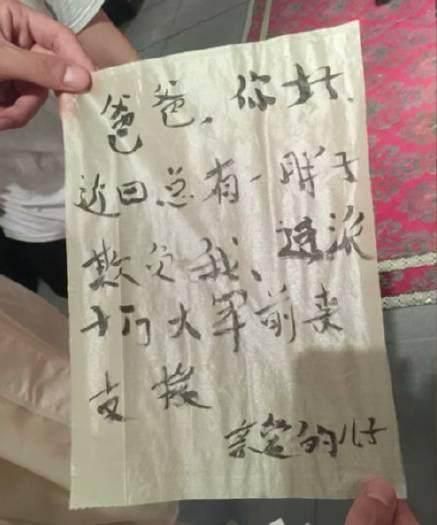 爸爸,你好,
近日总有一胖子
欺负我、速派
十万大军前来
支援
亲爱的儿子